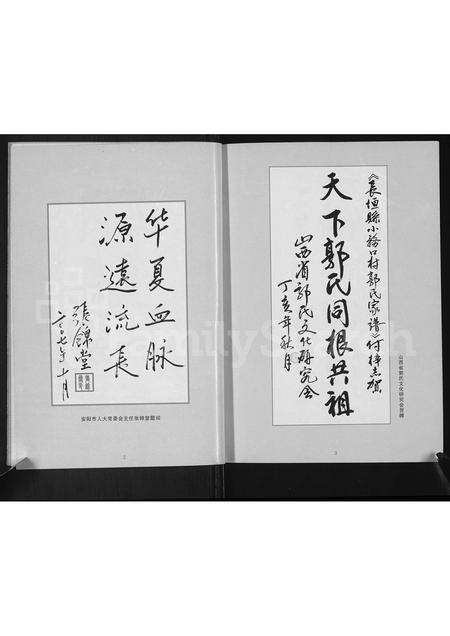 《長垣縣小務口村郭氏家谱》付梓志贺
天下郭氏同根共祖
山西省郭氏文化研究会
丁亥年秋月
山西省郭氏文化研究会贺辞
3
华夏血脉
源遠流长
張錦堂
二〇〇七年十月
安阳市人大常委会主任张锦堂题词
2
FamilySearch